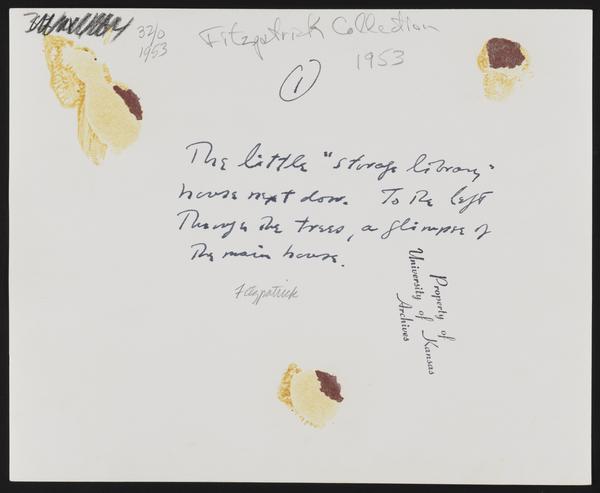 32/0
1953
Fitzpatrick Collection
1953
1
The little "storage library"
house next door. To the left
Through the trees, a glimpse of
The main house.
Fitzpatrick
Property of
University of Kansas
Archives